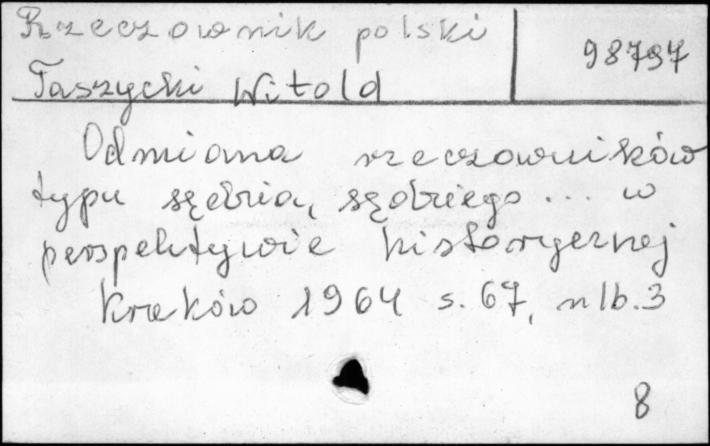 Rzeczownik polski
98797
Taszycki Witold
Odmiana rzeczowników
typu sędzia, sędziego ... w
perspektywie historycznej
Kraków 1964 s. 67, nlb. 3
8